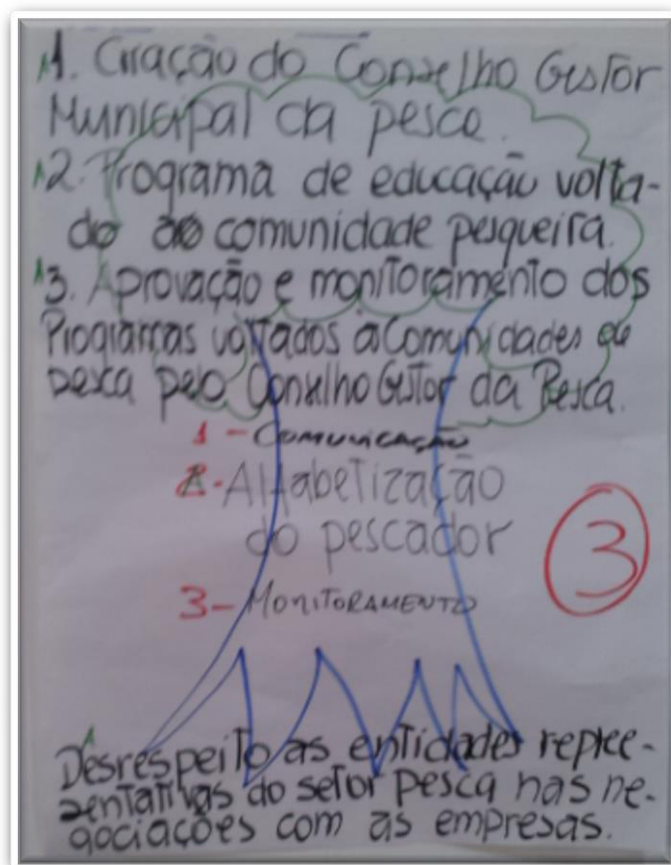 1. Criação do Conselho Gestor
Municipal da pesca.
2. Programa de educação volta-
do ao comunidade pesqueira.
3. Aprovação e monitoramento dos
Programas voltados a Comunidades de
pesca pelo Conselho Gestor da Pesca.
1 - COMUNICAÇÃO
2 - Alfabetização
do pescador
3 - MONITORAMENTO
3
Desrespeito as entidades repree-
sentativas do setor pesca nas ne-
gociações com as empresas.